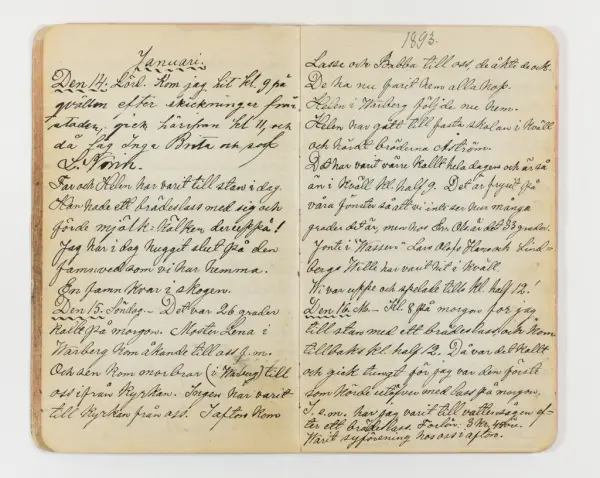 Januari.
Den 14. Lörd. Kom jag hit kl. 9 på
qvällen efter skickningar från
staden, gick härifrån kl 11, och
då låg Inga Brita och sof
Far och Helen har varit till stan i dag.
Han hade ett brädeslass med sig och
förde mjölk-kälken der uppå!
Jag har i dag huggit slut på den
famnved som vi har hemma.
En famn kvar i skogen.
Den 15. Söndag – Det var 26 grader
kallt på morgon. Moster Lena i
Warberg kom åkande till oss f.m.
Och sen kom morbror (i Warberg) till
oss ifrån kyrkan. Ingen har varit
till kyrkan från oss. I afton kom
1893.
Lasse och Bubba till oss, de åkte de ock.
De ha nu farit hem alla hop.
Helen i Warberg följde nu hem.
Helen har gått till fasta skolan i kväll
och hördt bröderna Åström.
Det har varit väre kallt hela dagen och är så
än i kväll kl. half 9. Det är fryst på
våra fönster så att vi inte ser hur många
grader det är, men hos Er. Ols är det 33 grader.
Jonti i "Wassen" Lars Olofs Hans och Lind-
bergs Wille har varit hit i kväll.
Vi var uppe och spelade tills kl. half 12!
Den 16. M– Kl. 8 på morgon for jag
till stan med ett brädeslass, och kom
tillbaks kl. half 12. Då var det kallt
och gick tungt för jag var den förste
som körde utöfver med lass på morgon.
I e.m. har jag varit till vattensågen ef-
ter ett brädeslass. Förtön. 3 kr. 48 öre.
Warit syförening hos oss i afton.